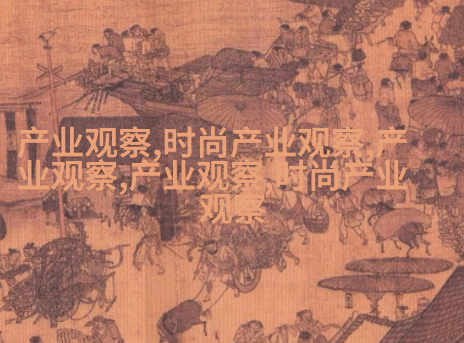 产业观察,时尚产业观察 产
业观察,产业观察 时尚产业
观察